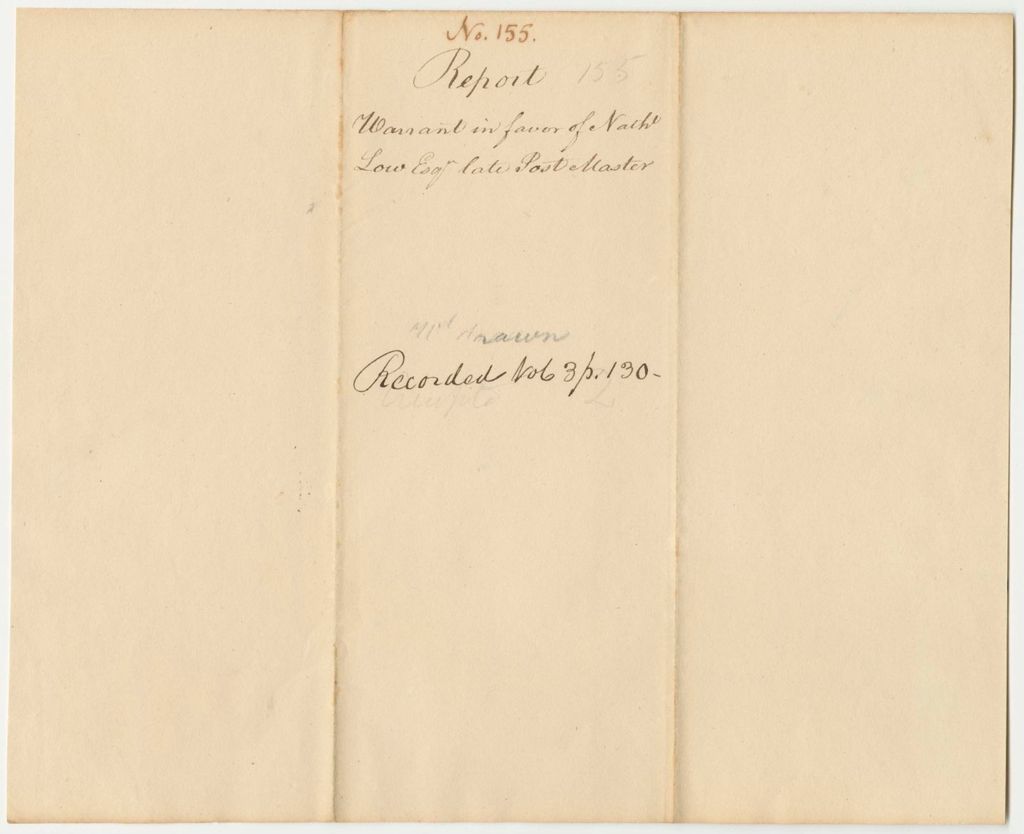 No. 155.
Report 155
Warrant in favor of Nathl
Low Esqr late Post Master
drawn
Recorded Vol 3 p. 130-